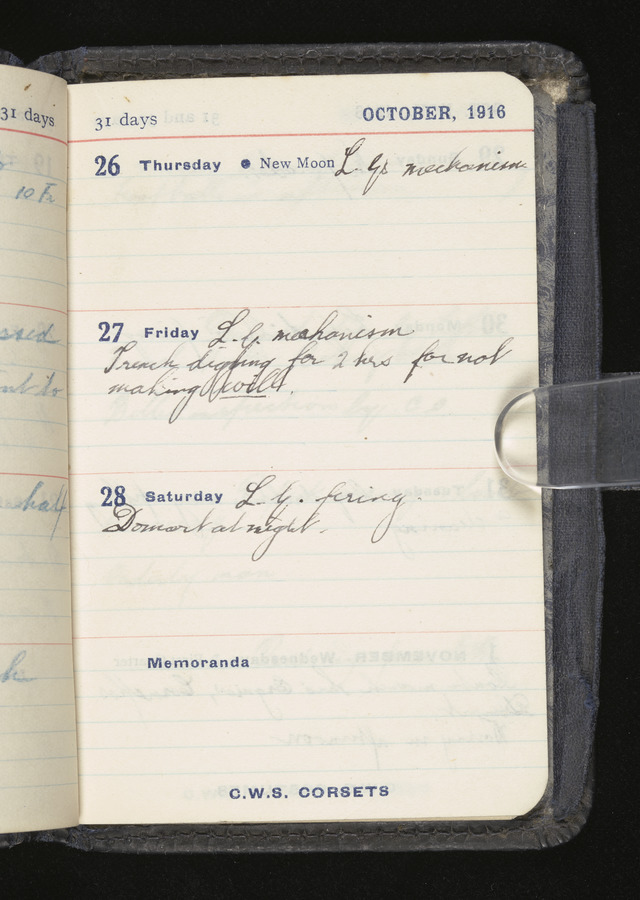 31 days
10 Fr
to
half
31 days OCTOBER, 1916
26 Thursday ● New Moon L. Gs mechanism
27 Friday L. G. mechanism
Trench digging for 2 hrs for not
making
28 Saturday L. G. firing.
Domart at night.
Memoranda
C.W.S. CORSETS